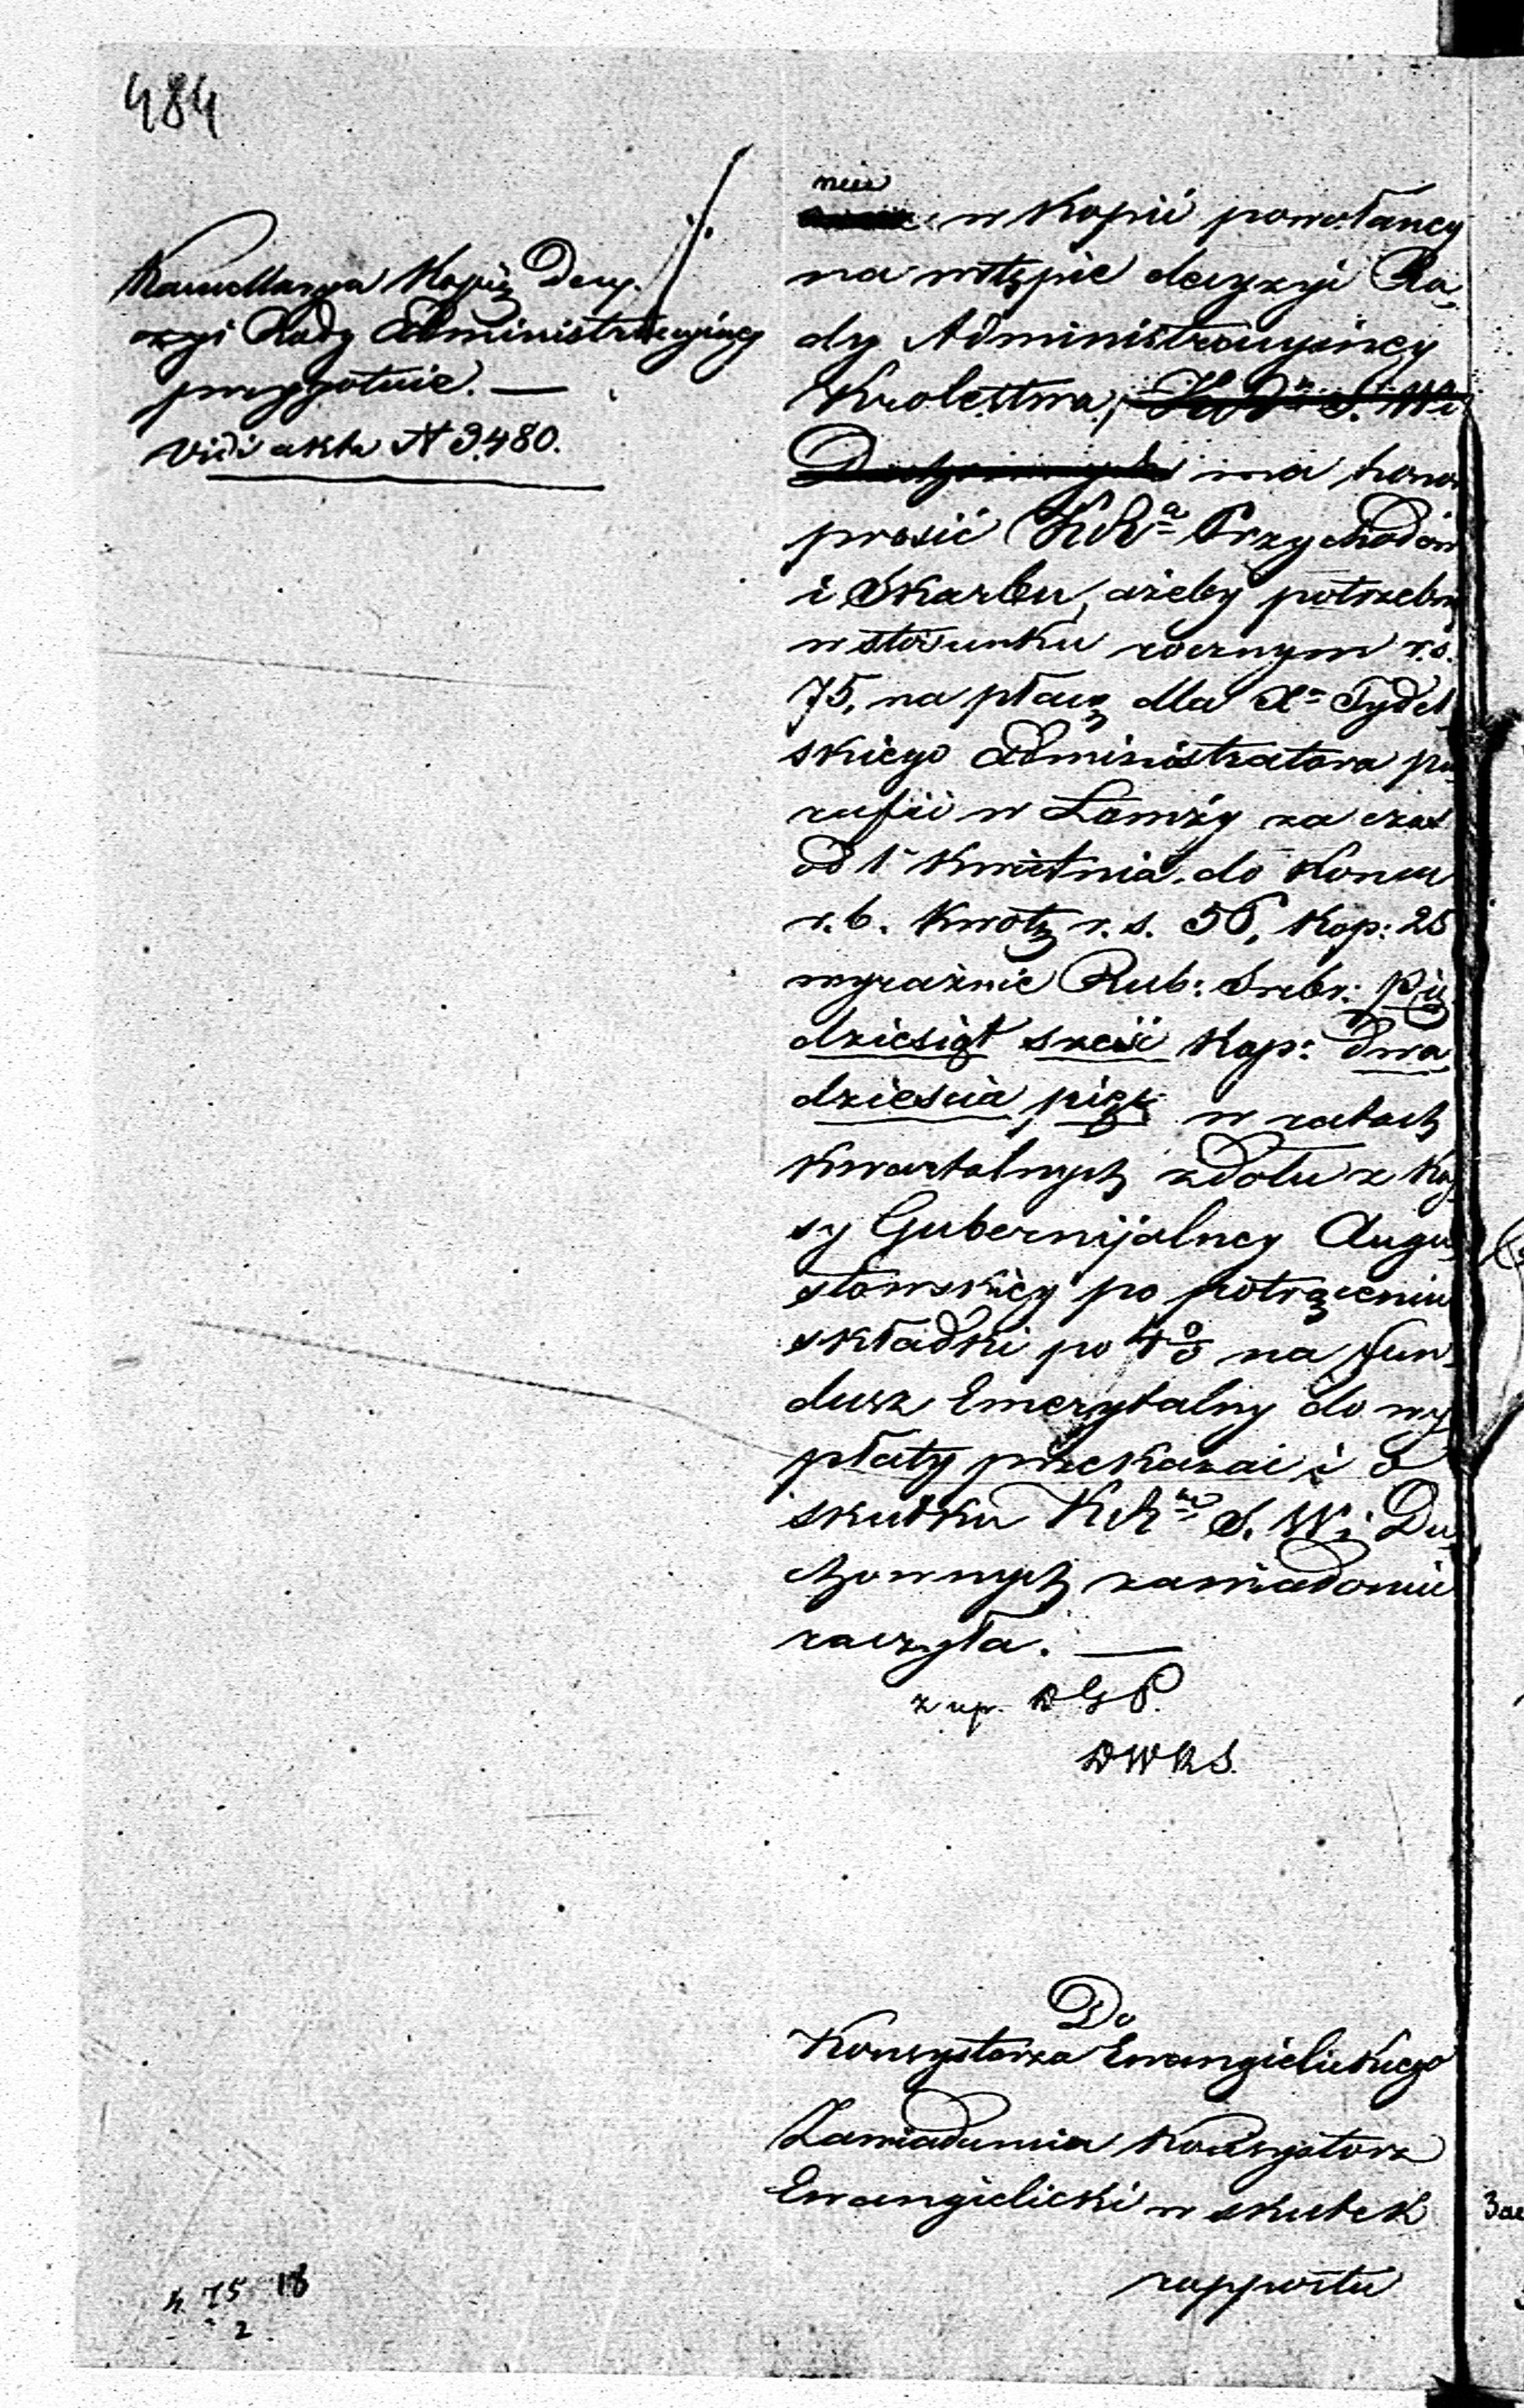 484
Kancellarya Kopię Decy-
zyi Rady Administracyjney
przygotuie. —
Vidi akta N 9.480.
niu
w Kopii powołaney
na wstępie decyzyi Ra-
dy Administracyiney
Krolestwa,
ma honor
prosić KR^a Przychodów
i Skarbu, ażeby potrzebną
w stosunku rocznym r.s.
75, na płacę dla X^a Tydel-
skiego Administratora pa-
rafii w Łomży za czas
od 1 Kwietnia do Konca
r. b. Kwotę r. s. 56, Kop: 25
wyraźnie Rub: Srebr: pię-
dziesiąt sześć Kop: dwa-
dzieścia pięć w ratach
Kwartalnych zdołu z Kas-
sy Gubernijalney Augu-
stowskiey po potrąceniu
składki po 4% na fun-
dusz Emerytalny do wy-
płaty przekazać i o
skutku KR S. W. i Du-
chownych zawiadomić
raczyła. —
z up. D G P.
D W R S.
Do
Konsystorza Ewangielickiego
Zawiadamia Konsystorz
Ewangielicki w skutek
rapportu
75 18
2